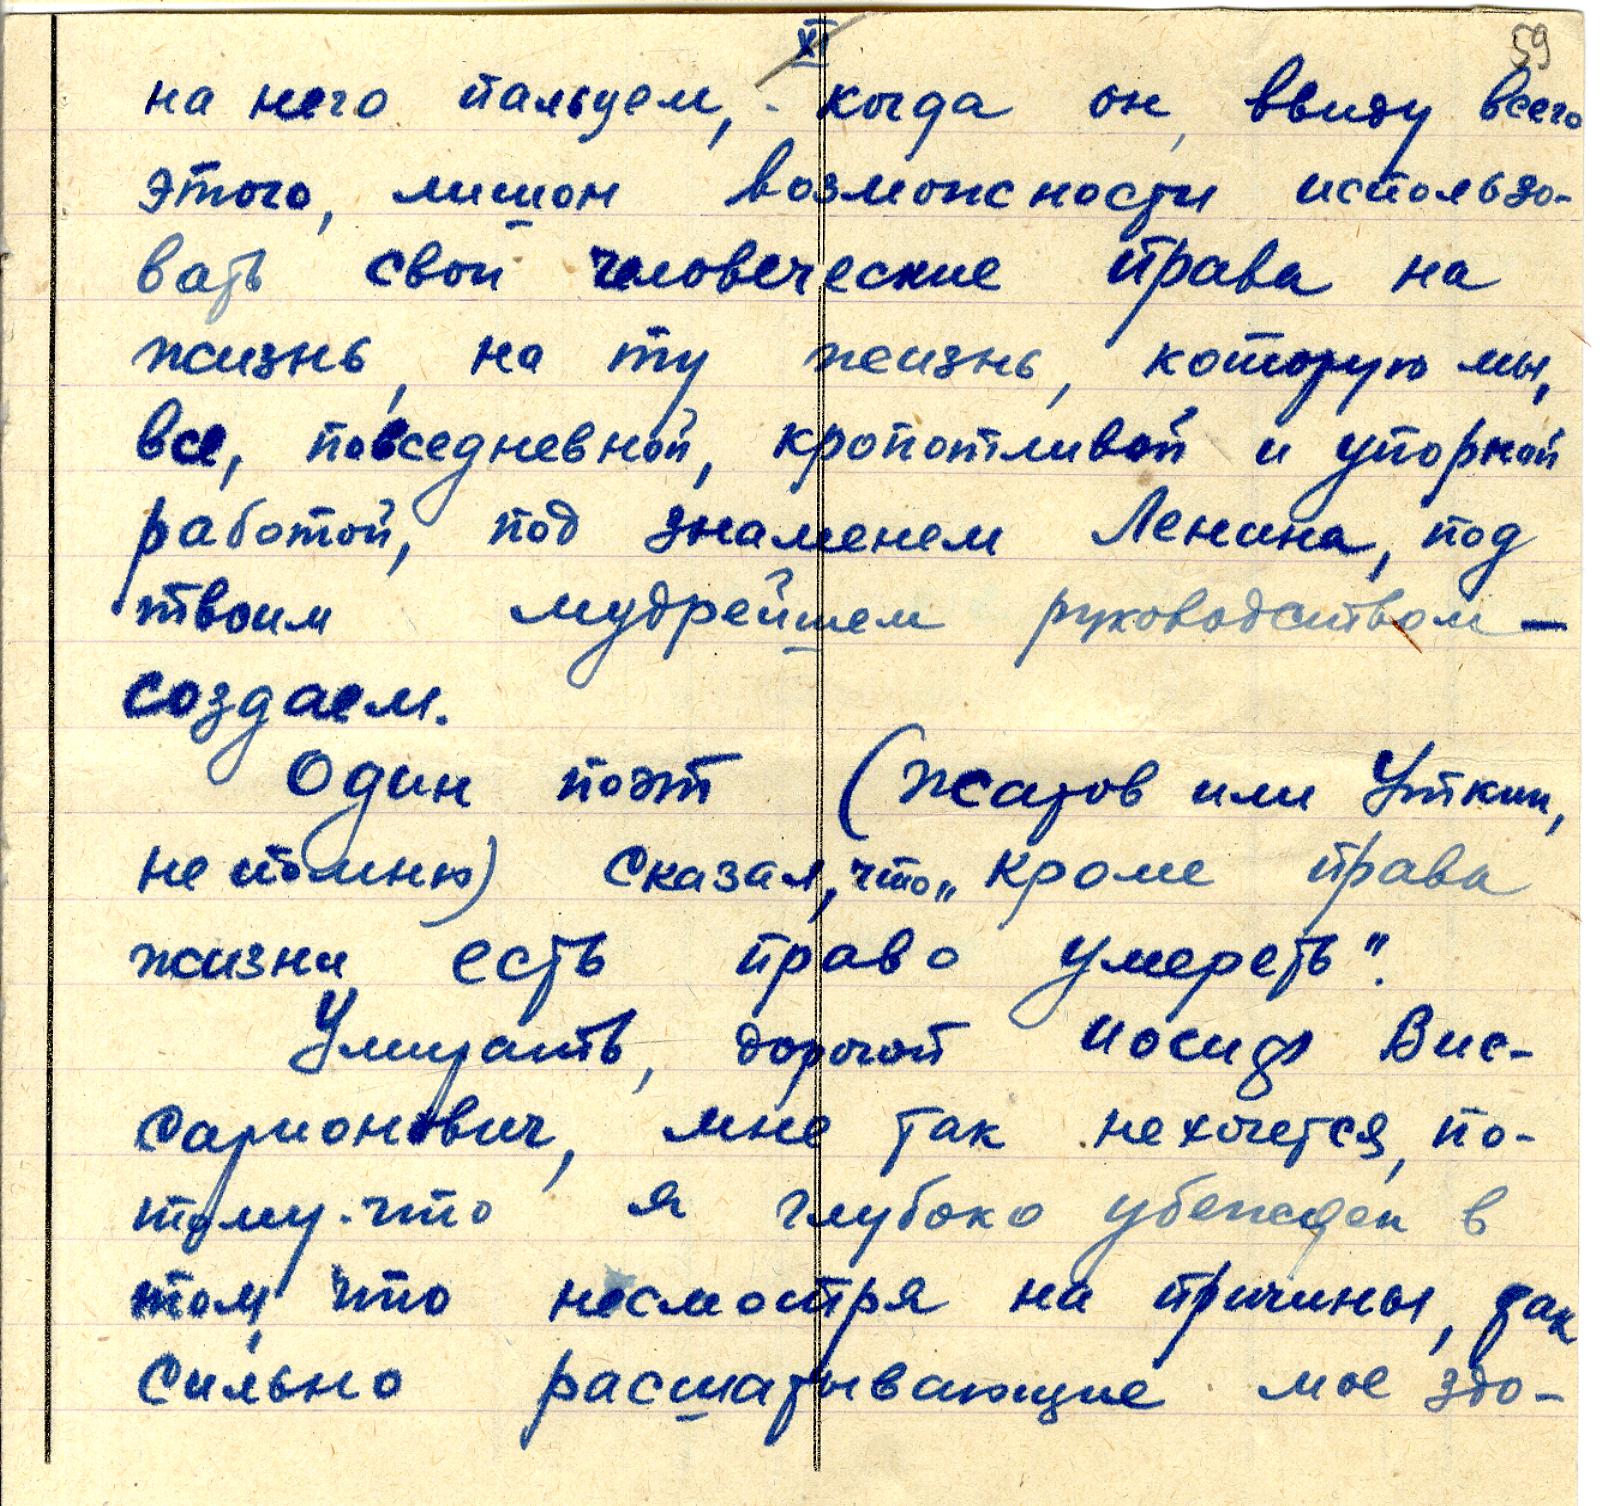 XI
59
на него пальцем, - когда он, ввиду всего
этого, лишон возможности использо-
вать свои человеческие права на
жизнь, на ту жизнь, которую мы,
все, повседневной, кропотливой и упорной
работой, под знаменем Ленина, под
твоим мудрейшем руководством —
создаем.
Один поэт (Жаров или Уткин,
не помню) сказал, что „кроме права
жизни есть право умереть".
Умирать, дорогой Иосиф Вис-
сарионович, мне так не хочется, по-
тому-что я глубоко убежден в
том, что несмоотря на причины, так
сильно расшатывающие мое здо-